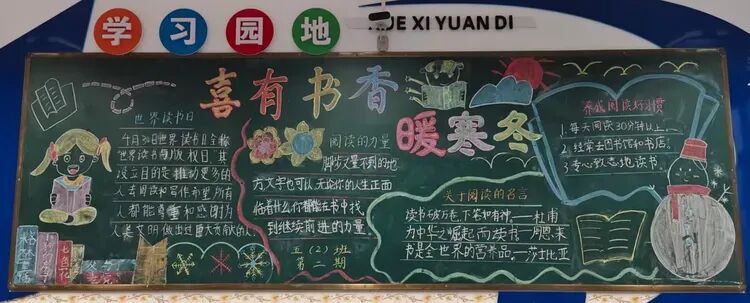 学习园地
XUE XI YUAN DI
喜有书香
暖寒冬
世界读书日
4月30日世界读书日全称
世界读书与版权日，其
设立目的是推动更多的
人去阅读和写作希望所有
人都能尊重和感谢为
人类文明做出过重大贡献的人
阅读的力量
脚步丈量不到的地
方文字也可以，无论你的人生正面
临着什么你都能在书中找
到继续前进的力量
五（2）班
第二期
关于阅读的名言
读书破万卷，下笔如有神。——杜甫
为中华之崛起而读书——周恩来
书是全世界的营养品。——莎士比亚
养成阅读好习惯
1.每天阅读30分钟以上。
2.经常去图书馆和书店。
3.专心致志地读书。
格林童话
七色花